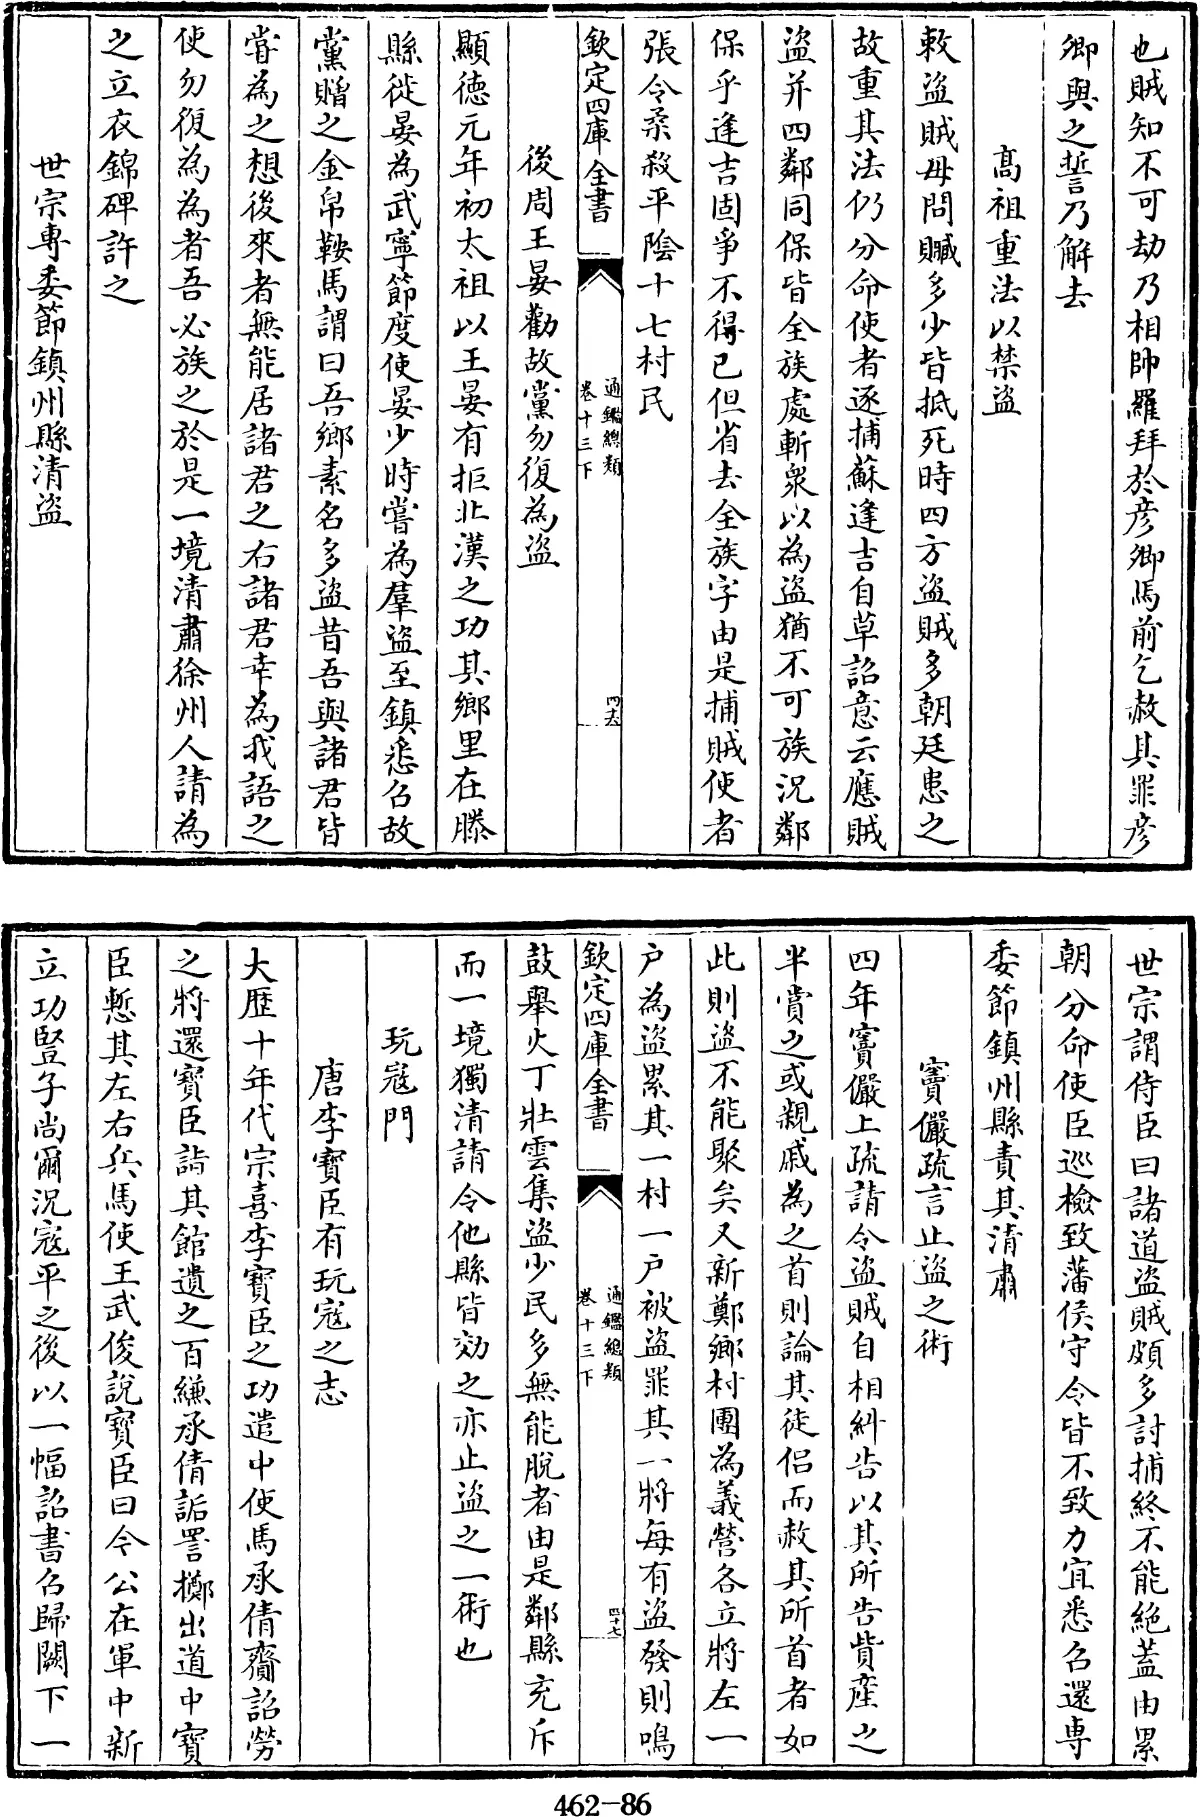 也賊知不可劫乃相帥羅拜於彦卿馬前乞赦其罪彦
卿與之誓乃解去
髙祖重法以禁盗
敕盗賊毋問贓多少皆抵死時四方盗賊多朝廷患之
故重其法仍分命使者逐捕蘇逢吉自草詔意云應賊
盗并四鄰同保皆全族處斬衆以為盗猶不可族況鄰
保乎逢吉固爭不得已但省去全族字由是捕賊使者
張令柔殺平陰十七村民
欽定四庫全書
通鑑總類
卷十三下
四十六
後周王晏勸故黨勿復為盗
顯徳元年初太祖以王晏有拒北漢之功其鄉里在滕
縣徙晏為武寧節度使晏少時嘗為羣盗至鎮悉召故
黨贈之金帛鞍馬謂曰吾鄉素名多盗昔吾與諸君皆
嘗為之想後來者無能居諸君之右諸君幸為我語之
使勿復為為者吾必族之於是一境清肅徐州人請為
之立衣錦碑許之
世宗専委節鎮州縣清盗
世宗謂侍臣曰諸道盗賊頗多討捕終不能絶蓋由累
朝分命使臣巡檢致藩侯守令皆不致力宜悉召還専
委節鎮州縣責其清肅
竇儼疏言止盗之術
四年竇儼上疏請令盗賊自相糾告以其所告貲産之
半賞之或親戚為之首則論其徒侣而赦其所首者如
此則盗不能聚矣又新鄭鄉村團為義營各立將左一
户為盗累其一村一户被盗罪其一將每有盗發則鳴
欽定四庫全書
通鑑總類
卷十三下
四十七
鼓舉火丁壯雲集盗少民多無能脱者由是鄰縣充斥
而一境獨清請令他縣皆効之亦止盗之一術也
玩寇門
唐李寶臣有玩寇之志
大厯十年代宗喜李寶臣之功遣中使馬承倩齎詔勞
之將還寶臣詣其館遺之百縑承倩詬詈擲出道中寶
臣慙其左右兵馬使王武俊説寶臣曰今公在軍中新
立功豎子尚爾況寇平之後以一幅詔書召歸闕下一
462-86